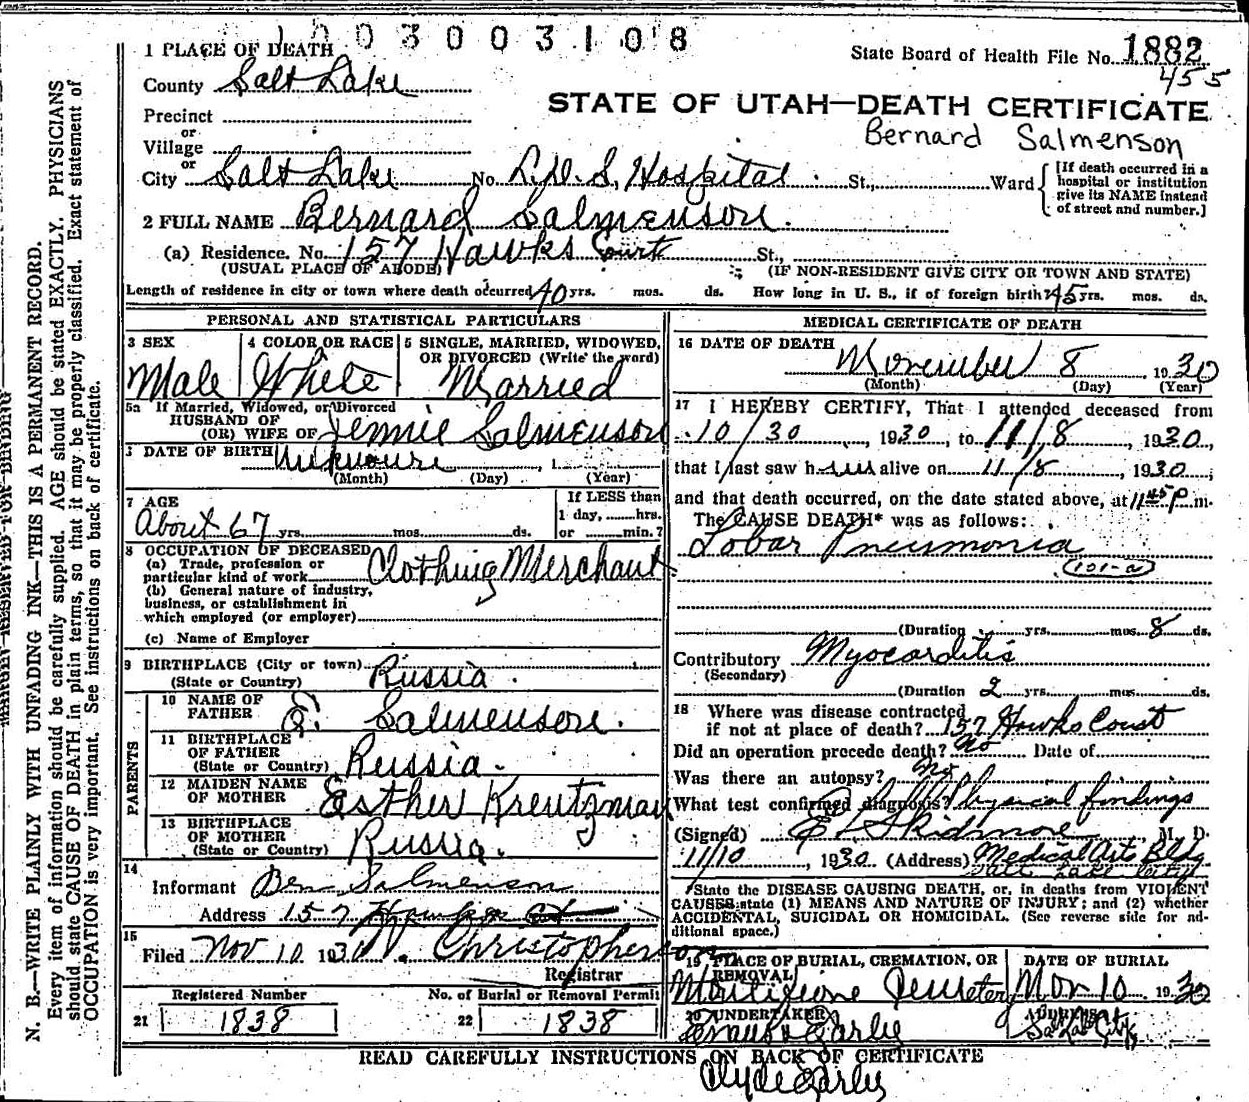 1003003108
State Board of Health File No. 1882
455
STATE OF UTAH—DEATH CERTIFICATE
Bernard Salmenson
1 PLACE OF DEATH
County Salt Lake
Precinct
or
Village
or
City Salt Lake No. L.D.S. Hospital St., Ward
[If death occurred in a
hospital or institution
give its NAME instead
of street and number.]
2 FULL NAME Bernard Salmenson.
(a) Residence. No. 157 Hawks Court St.,
(USUAL PLACE OF ABODE) (IF NON-RESIDENT GIVE CITY OR TOWN AND STATE)
Length of residence in city or town where death occurred 40 yrs. mos. ds. How long in U. S., if of foreign birth? 45 yrs. mos. ds.
PERSONAL AND STATISTICAL PARTICULARS
3 SEX
Male
4 COLOR OR RACE
White
5 SINGLE, MARRIED, WIDOWED,
OR DIVORCED (Write the word)
Married
5a If Married, Widowed, or Divorced
HUSBAND OF
(OR) WIFE OF Jennie Salmenson
DATE OF BIRTH Unknown , 1
(Month) (Day) (Year)
7 AGE
About 67 yrs. mos. ds.
If LESS than
1 day, hrs.
or min.?
8 OCCUPATION OF DECEASED
(a) Trade, profession or
particular kind of work Clothing Merchant
(b) General nature of industry,
business, or establishment in
which employed (or employer)
(c) Name of Employer
9 BIRTHPLACE (City or town)
(State or Country) Russia.
PARENTS
10 NAME OF
FATHER Salmenson.
11 BIRTHPLACE
OF FATHER
(State or Country) Russia.
12 MAIDEN NAME
OF MOTHER Esther Kreutzman
13 BIRTHPLACE
OF MOTHER
(State or Country) Russia.
14
Informant Ben Salmenson
Address 157 Hawks Ct
15
Filed Nov 10 1930 Christopherson
Registrar
Registered Number
21 1838
No. of Burial or Removal Permit
22 1838
MEDICAL CERTIFICATE OF DEATH
16 DATE OF DEATH
November 8, 1930
(Month) (Day) (Year)
17 I HEREBY CERTIFY, That I attended deceased from
10/30, 1930, to 11/8, 1930,
that I last saw him alive on 11/8, 1930;
and that death occurred, on the date stated above, at 11 45 P.m.
The CAUSE DEATH* was as follows:
Lobar Pneumonia
101-a
(Duration yrs. mos. 8 ds.
Contributory Myocarditis
(Secondary)
(Duration 2 yrs. mos. ds.
18 Where was disease contracted
if not at place of death? 157 Hawks Court
Did an operation precede death? No Date of
Was there an autopsy? No
What test confirmed diagnosis? Physical findings
(Signed) Skidmore, M. D.
11/10, 1930. (Address) Medical Arts Bldg
Salt Lake City
*State the DISEASE CAUSING DEATH, or, in deaths from VIOLENT
CAUSES state (1) MEANS AND NATURE OF INJURY; and (2) whether
ACCIDENTAL, SUICIDAL OR HOMICIDAL. (See reverse side for ad-
ditional space.)
19 PLACE OF BURIAL, CREMATION, OR
REMOVAL
Montifiore Cemetery
DATE OF BURIAL
Nov 10 1930
20 UNDERTAKER
Evans & Early
ADDRESS
Salt Lake City
READ CAREFULLY INSTRUCTIONS ON BACK OF CERTIFICATE
Clyde Early
N. B.—WRITE PLAINLY WITH UNFADING INK—THIS IS A PERMANENT RECORD.
Every item of information should be carefully supplied. AGE should be stated EXACTLY. PHYSICIANS
should state CAUSE OF DEATH in plain terms, so that it may be properly classified. Exact statement of
OCCUPATION is very important. See instructions on back of certificate.